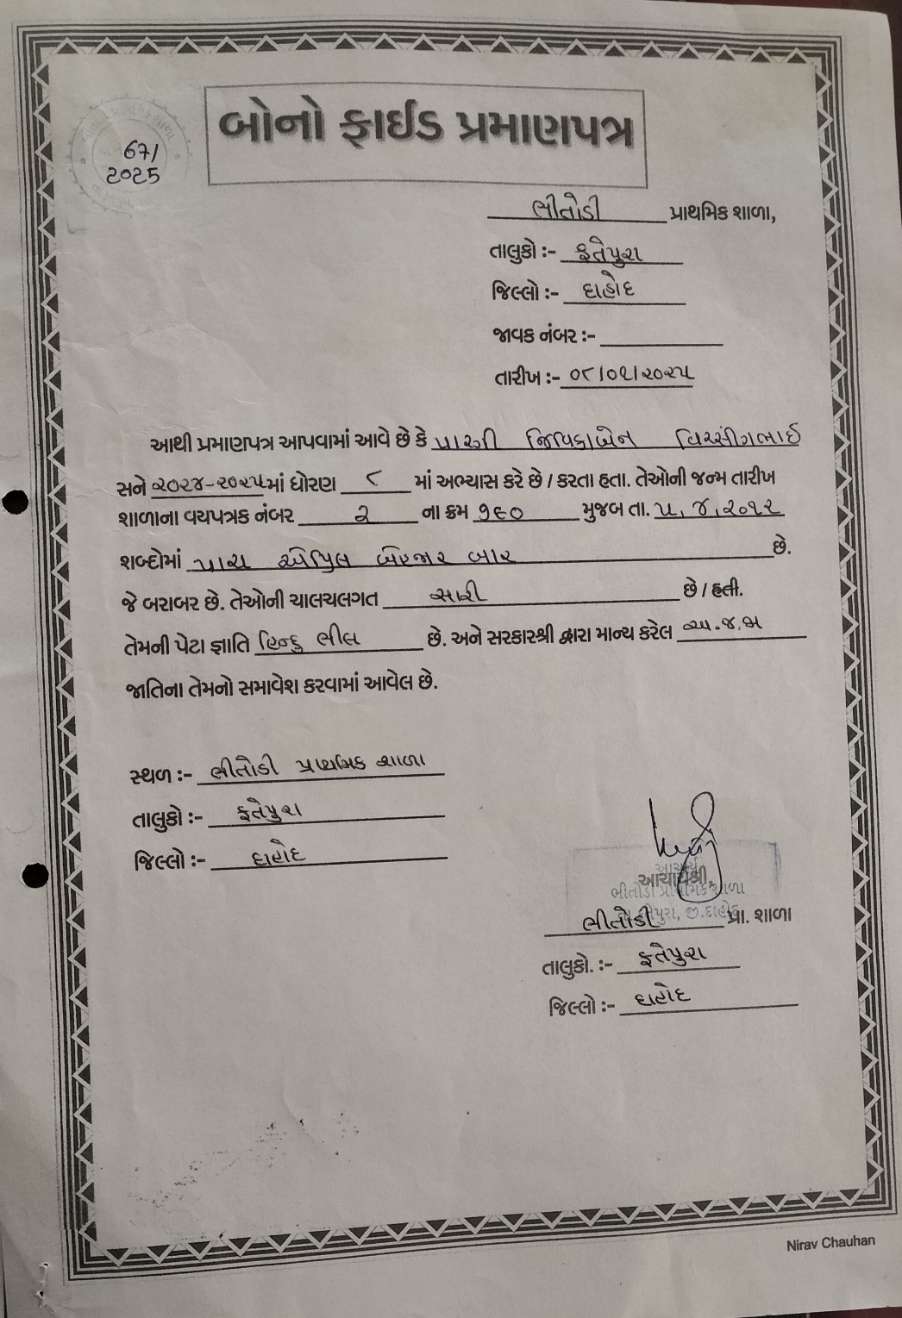 બોનો ફાઈડ પ્રમાણપત્ર
671
2025
ભીતોડી પ્રાથમિક શાળા,
તાલુકો :- ફતેપુરા
જિલ્લો :- દાહોદ
જાવક નંબર :-
તારીખ :- ૦૮/૦૧/૨૦૨૫
આથી પ્રમાણપત્ર આપવામાં આવે છે કે પારગી જિવિકાબેન વિરસીંગભાઈ
સને ૨૦૨૪-૨૦૨૫માં ધોરણ ૮ માં અભ્યાસ કરે છે / કરતા હતા. તેઓની જન્મ તારીખ
શાળાના વયપત્રક નંબર ૨ ના ક્રમ ૧૬૦ મુજબ તા. ૫,૪,૨૦૧૨
શબ્દોમાં પાચ એપ્રિલ બેહજાર બાર છે.
જે બરાબર છે. તેઓની ચાલચલગત સારી છે / હતી.
તેમની પેટા જ્ઞાતિ હિન્દુ ભીલ છે. અને સરકારશ્રી દ્વારા માન્ય કરેલ અ.જ.જા
જાતિના તેમનો સમાવેશ કરવામાં આવેલ છે.
સ્થળ :- ભીતોડી પ્રાથમિક શાળા
તાલુકો :- ફતેપુરા
જિલ્લો :- દાહોદ
આચાર્યશ્રી,
ભીતોડી પ્રાથમિક શાળા
ભીતોડી પ્રા. શાળા
તાલુકો. :- ફતેપુરા
જિલ્લો :- દાહોદ
Nirav Chauhan